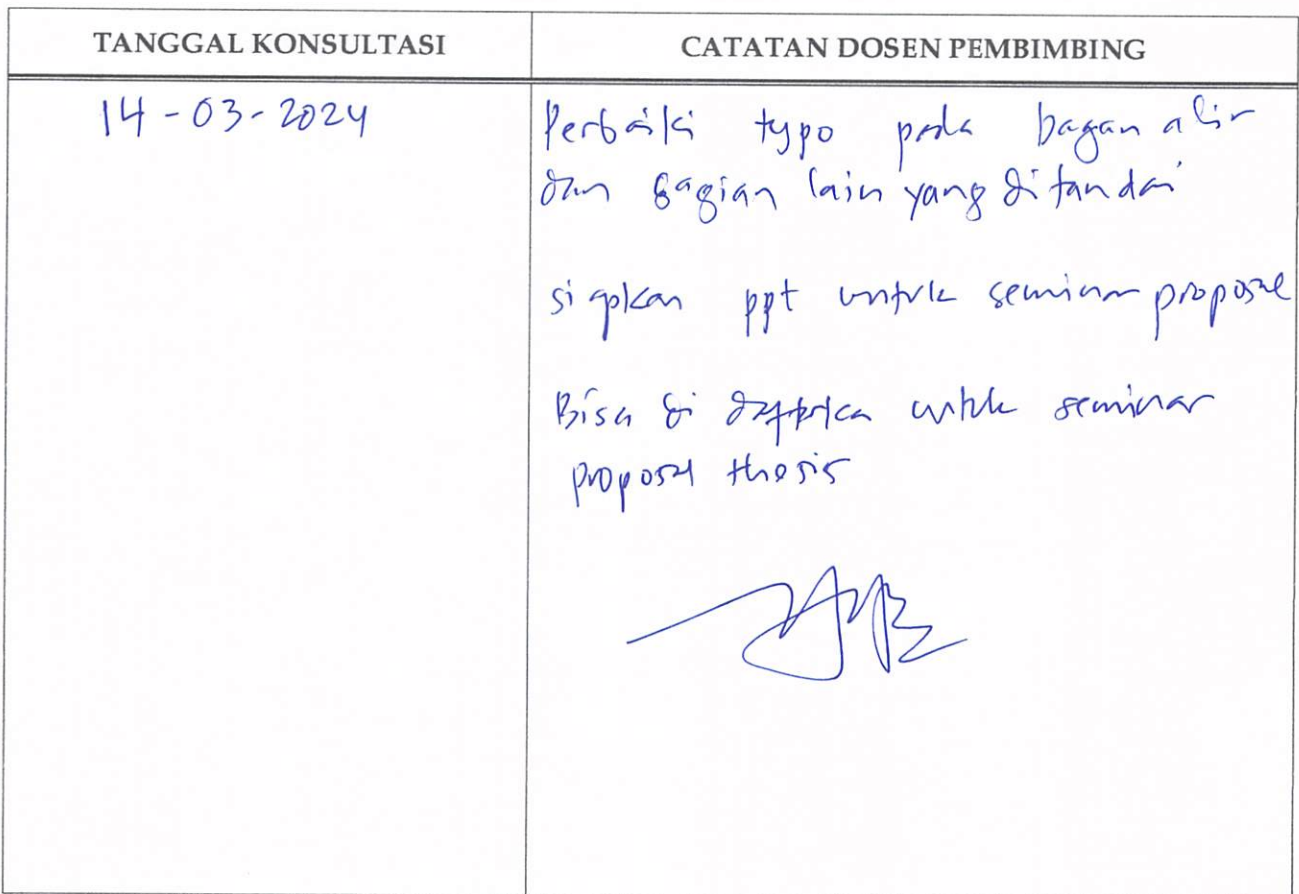 TANGGAL KONSULTASI
CATATAN DOSEN PEMBIMBING
14-03-2024
Perbaiki typo pada bagan alir
dan bagian lain yang ditandai
siapkan ppt untuk seminar proposal
Bisa di daftarka untuk seminar
proposal thesis